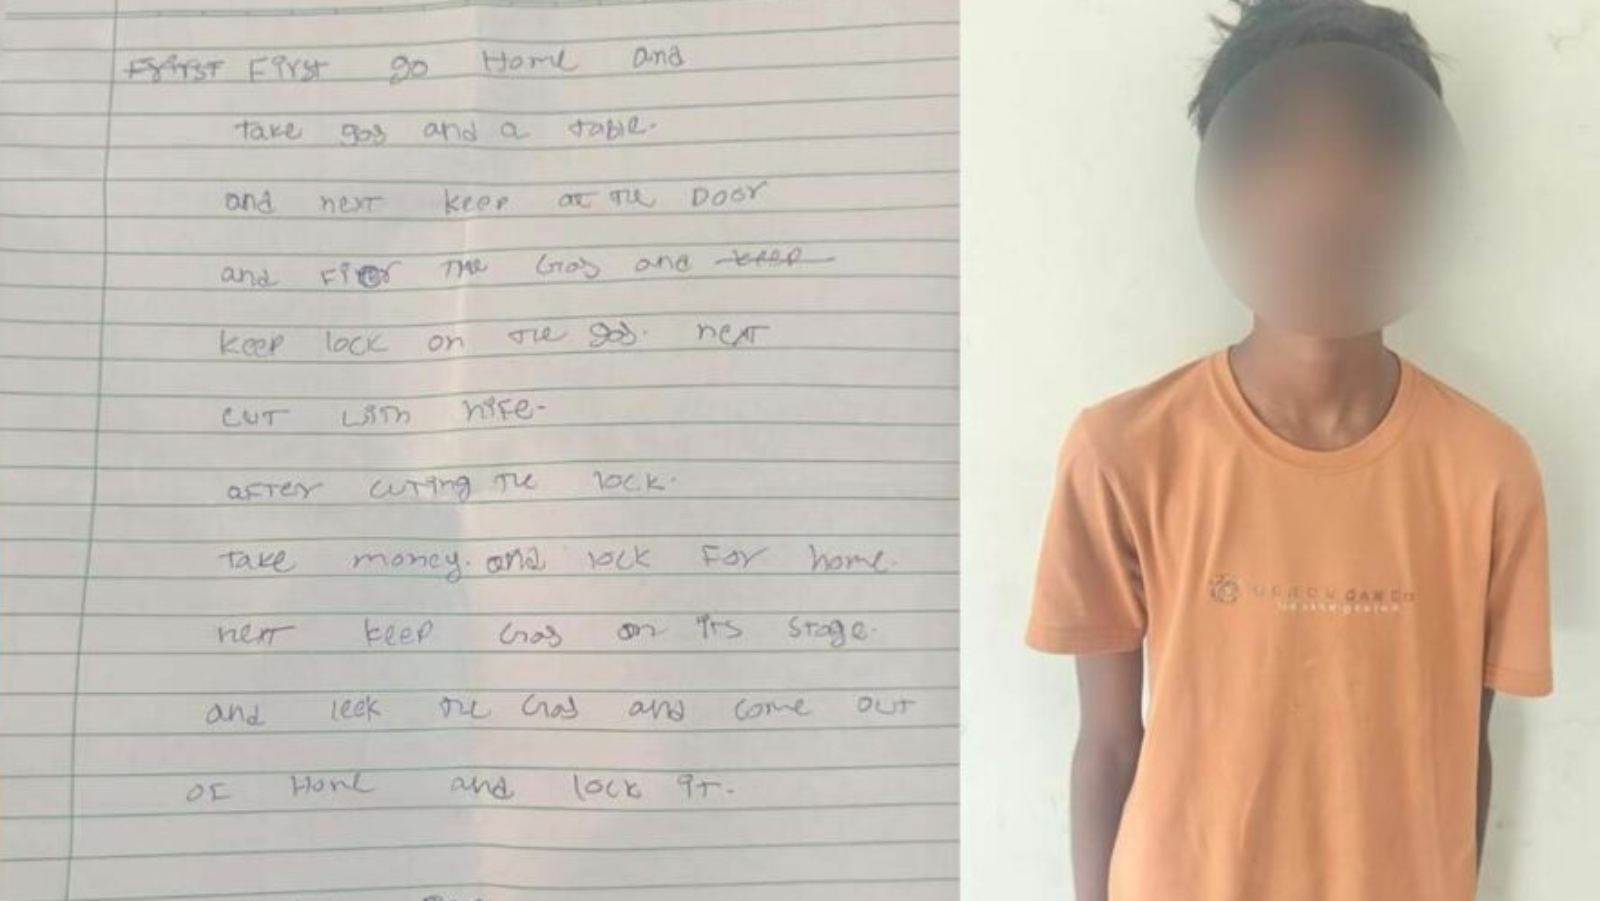 First First go Home and
take gas and a table.
and next keep at the Door
and Fior the Gas and keep
keep lock on the gas. next
cut with nife-
after cuting the lock.
take money. and lock For home.
next keep Gas on its stage.
and leek the Gas and come out
of Home and lock it.